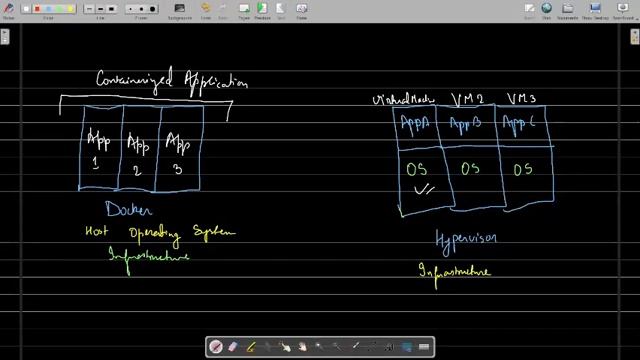 Containerized Application
App 1
App 2
App 3
Docker
Host Operating System
Infrastructure
Virtual Machine VM2 VM3
AppA AppB AppC
OS OS OS
Hypervisor
Infrastructure